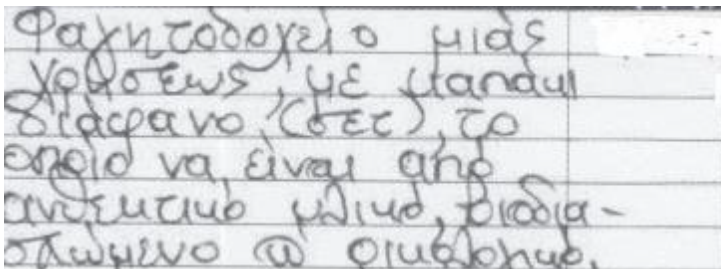 Φαγητοδοχείο μιας
χρήσεως, με καπάκι
διάφανο, (σετ), το
οποίο να είναι από
ανθεκτικό υλικό, βιοδια-
σπώμενο ή οικολογικό.